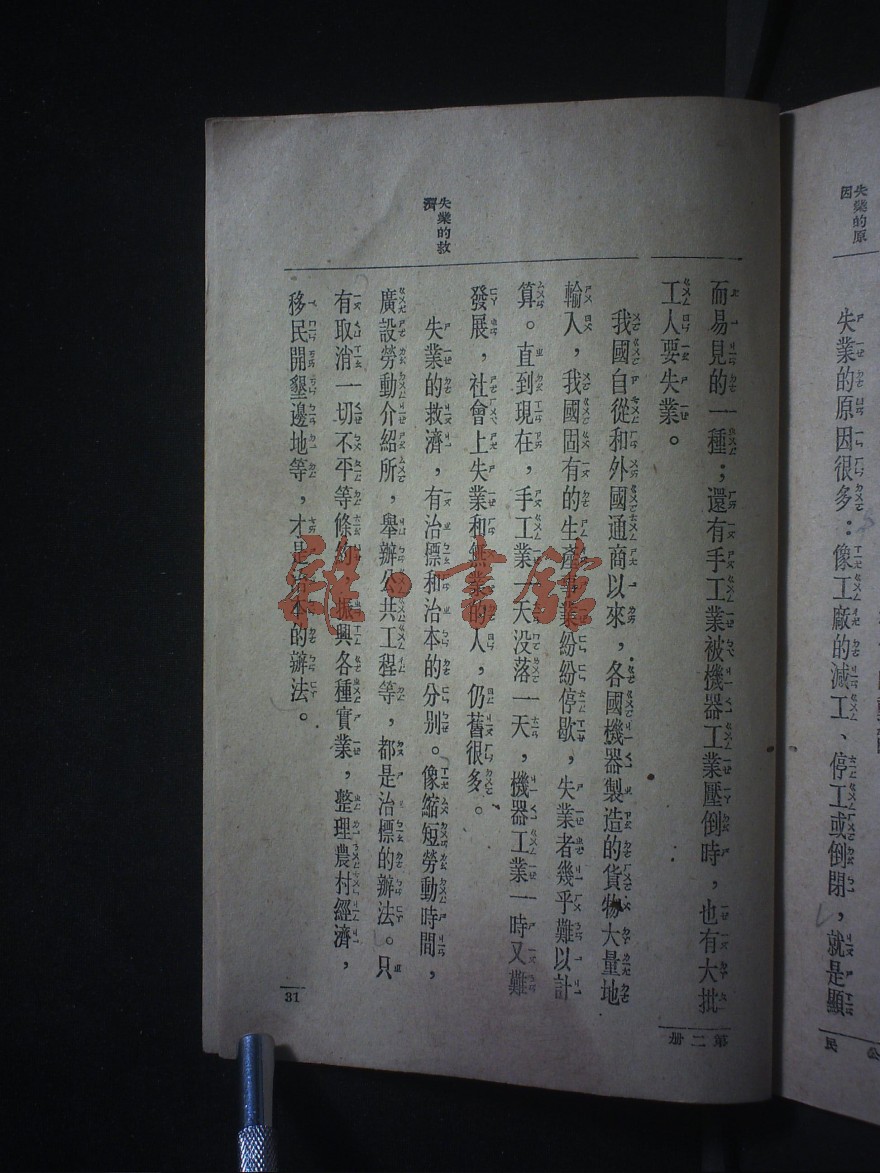 失業的原
因
失業的原因很多：像工廠的減工、停工或倒閉，就是顯
公民
而易見的一種；還有手工業被機器工業壓倒時，也有大批
工人要失業。
我國自從和外國通商以來，各國機器製造的貨物大量地
輸入，我國固有的生產事業紛紛停歇，失業者幾乎難以計
算。直到現在，手工業一天沒落一天，機器工業一時又難
發展，社會上失業和無業的人，仍舊很多。
失業的救
濟
失業的救濟，有治標和治本的分別。像縮短勞動時間，
廣設勞動介紹所，舉辦公共工程等，都是治標的辦法。只
有取消一切不平等條約，振興各種實業，整理農村經濟，
移民開墾邊地等，才是治本的辦法。
第二册
31
雜·書館